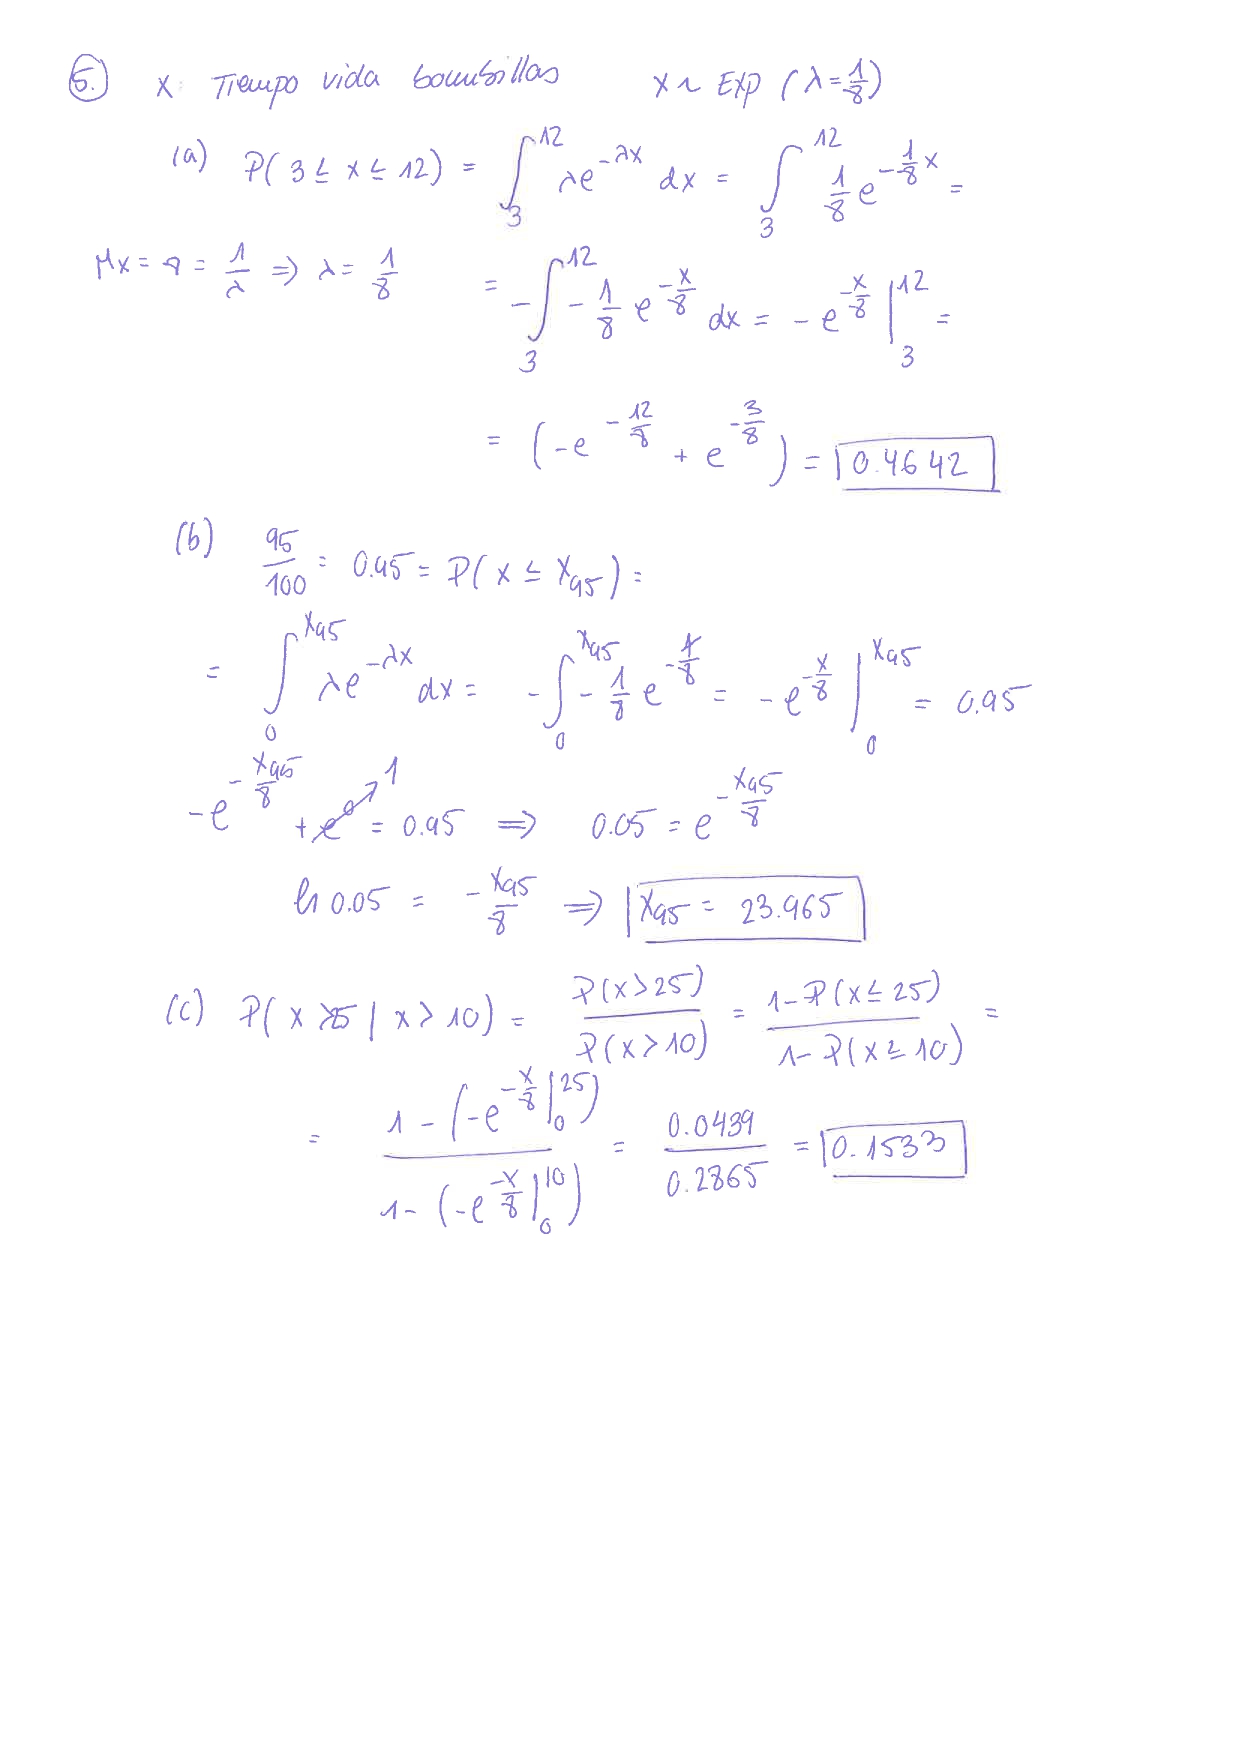 5. X: Tiempo vida bombillas X ~ EXP (λ = 1/8)
(a) P(3 ≤ X ≤ 12) = ∫_3^12 λe^{-λx} dx = ∫_3^12 1/8 e^{-1/8 x} =
μx = 8 = 1/λ ⇒ λ = 1/8 = -∫_3^12 -1/8 e^{-x/8} dx = -e^{-x/8} |_3^12 =
= (-e^{-12/8} + e^{-3/8}) = 0.4642
(b) 95/100 = 0.95 = P(X ≤ X95) =
= ∫_0^{X95} λe^{-λx} dx = -∫_0^{X95} -1/8 e^{-x/8} = -e^{-x/8} |_0^{X95} = 0.95
-e^{-X95/8} + e^0 ↗ 1 = 0.95 ⇒ 0.05 = e^{-X95/8}
ln 0.05 = -X95/8 ⇒ X95 = 23.965
(c) P(X > 25 | X > 10) = P(X > 25) / P(X > 10) = 1 - P(X ≤ 25) / 1 - P(X ≤ 10) =
= 1 - (-e^{-x/8} |_0^25) / 1 - (-e^{-x/8} |_0^10) = 0.0439 / 0.2865 = 0.1533